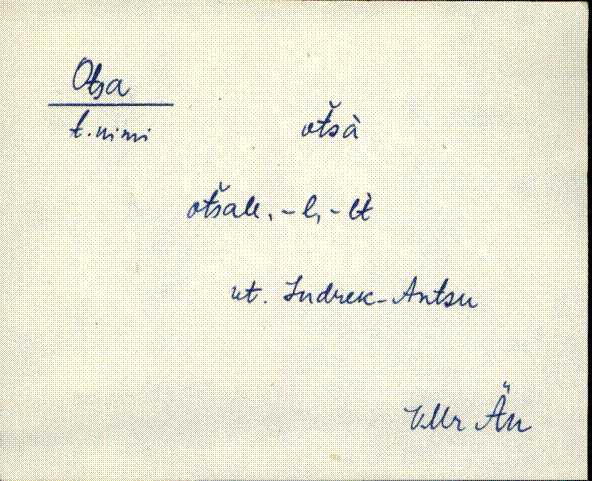 Otsa
t. nimi
ot̆sà
ot̆sale, -l, -lt̀
vt. Indrek-Antsu
VMr Än